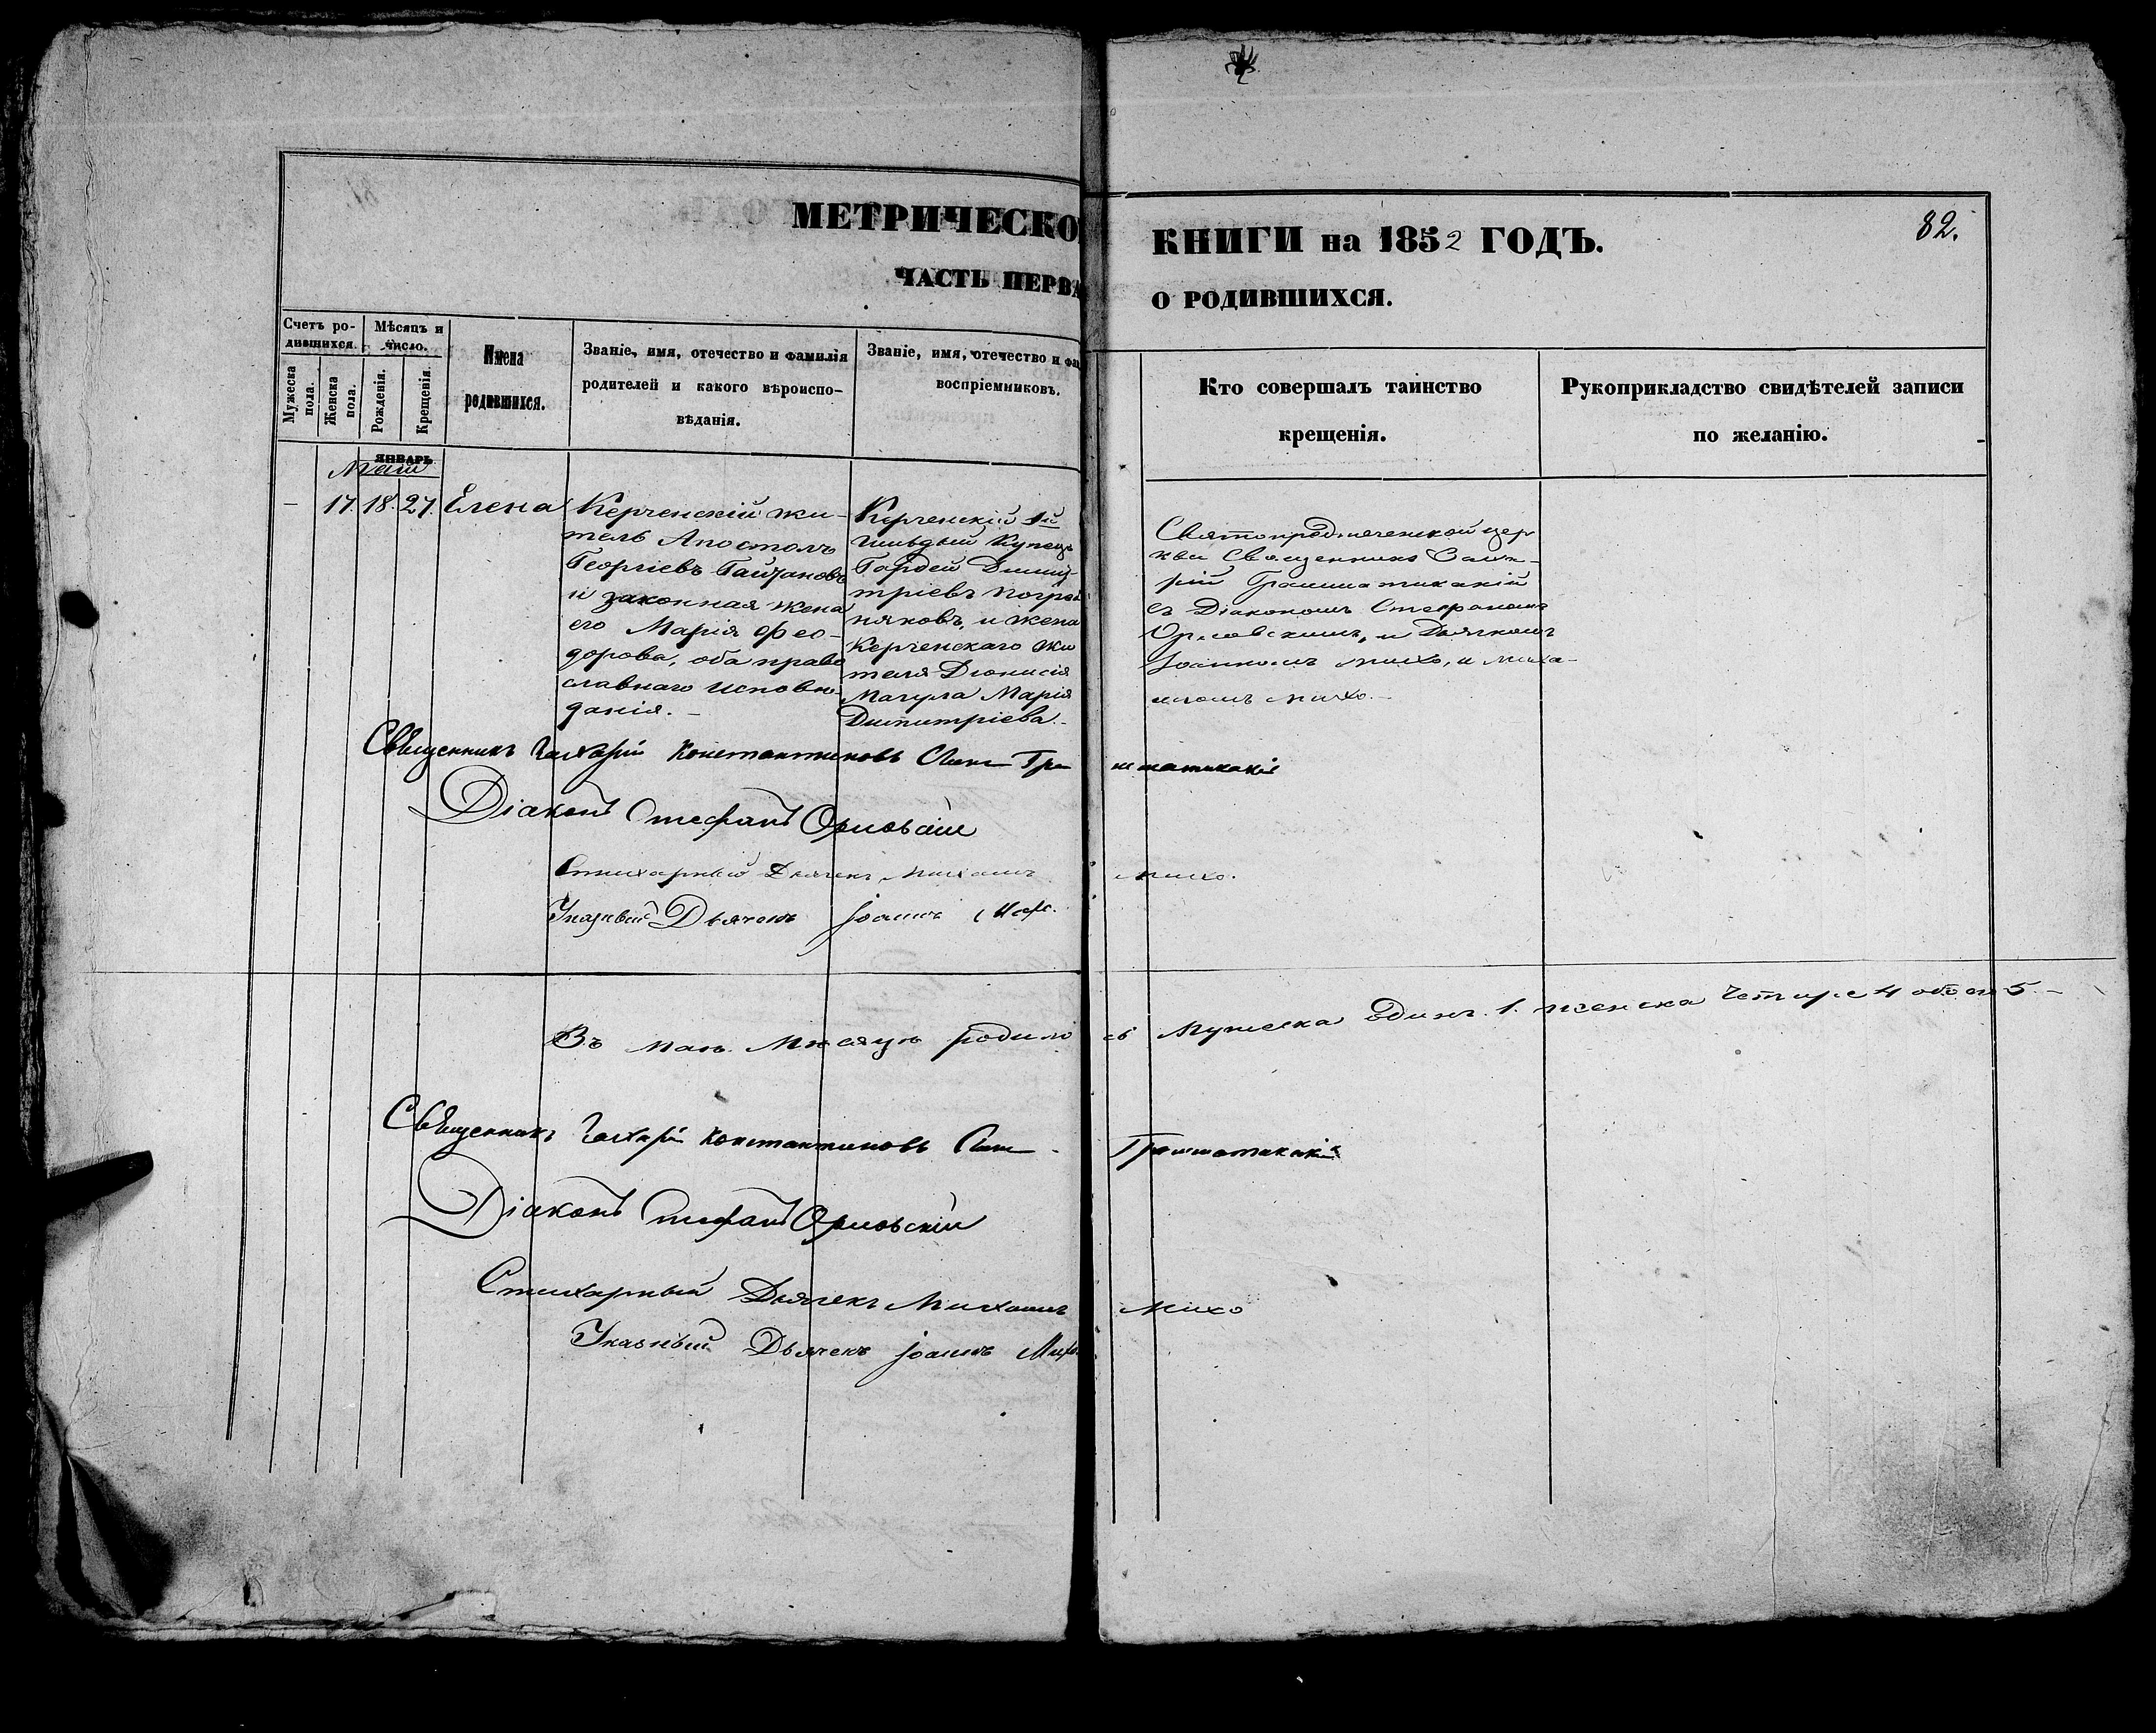 МЕТРИЧЕСКО КНИГИ на 1852 ГОДЪ.
82.
ЧАСТЬ ПЕРВА О РОДИВШИХСЯ.
Счетъ ро-
дившихся.
Мужеска пола.
Женска пола.
Мѣсяцъ и
число.
Рожденія.
Крещенія.
Имена
родившихся.
Званіе, имя, отечество и фамилія
родителей и какого вѣроиспо-
вѣданія.
Званіе, имя, отечество и фа
воспріемниковъ.
Кто совершалъ таинство
крещенія.
Рукоприкладство свидѣтелей записи
по желанію.
ЯНВАРЬ
Маій
– 17. 18. 27. Елена
Керченскій жи-
тель Апостолъ
Георгіевъ
и законная жена
его Марія Фео-
дорова, оба право
славнаго исповѣ-
данія. –
Керченскій 1й
Гильдіи Купецъ
Гордей Димит-
тріевъ
няковъ, и жена
Керченскаго жи
теля Діонисія
Мачула Марія
Димитріева. –
Святопредтеченской цер
кви Священникъ Заха-
рій Грамматикакій
съ Діакономъ Стефаномъ
Орловскимъ, и Дьячкомъ
Іоанномъ Михо, и Миха-
иломъ Михо. –
Священникъ Захарій Константиновъ Сынъ Грамматикакій
Діаконъ Стефанъ Орловскій
Стихарный Дьячекъ Михаилъ Михо.
Указный Дьячекъ Іоаннъ Михо.
Въ маѣ Мѣсяцѣ родилось Мужеска Одинъ 1. женска Четыре 4 обоего 5. –
Священникъ Захарій Константиновъ Сынъ Грамматикакій
Діаконъ Стефанъ Орловскій
Стихарный Дьячекъ Михаилъ Михо
Указный Дьячекъ Іоаннъ Михо